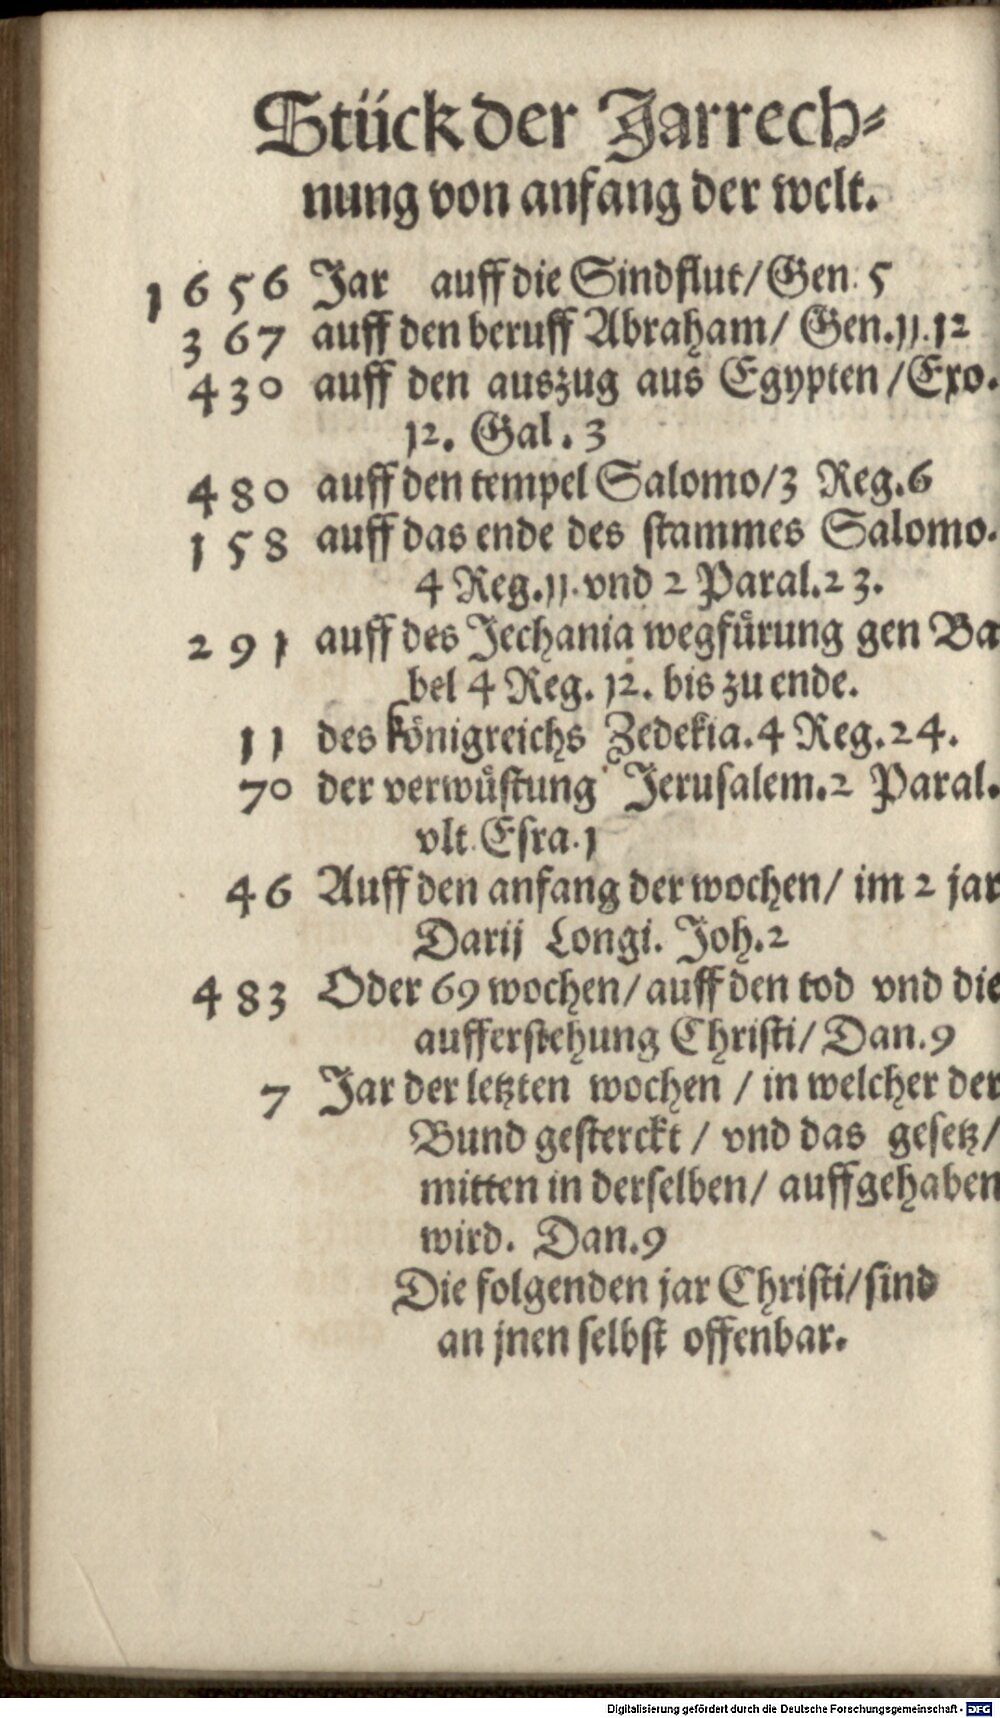 Stück der Jarrech⸗
nung von anfang der welt.
1656 Jar auff die Sindflut/Gen. 5
367 auff den beruff Abraham/ Gen.11.12
430 auff den auszug aus Egypten/Exo.
12. Gal. 3
480 auff den tempel Salomo/3 Reg.6
158 auff das ende des stammes Salomo.
4 Reg.11. vnd 2 Paral.23.
291 auff des Jechania wegfürung gen Ba
bel 4 Reg. 12. bis zu ende.
11 des königreichs Zedekia.4 Reg.24.
70 der verwüstung Jerusalem.2 Paral.
vlt. Esra.1
46 Auff den anfang der wochen/ im 2 jar
Darij Longi. Joh.2
483 Oder 69 wochen/ auff den tod vnd die
aufferstehung Christi/ Dan.9
7 Jar der letzten wochen / in welcher der
Bund gesterckt / vnd das gesetz/
mitten in derselben/ auffgehaben
wird. Dan.9
Die folgenden jar Christi/sind
an jnen selbst offenbar.
Digitalisierung gefördert durch die Deutsche Forschungsgemeinschaft - DFG